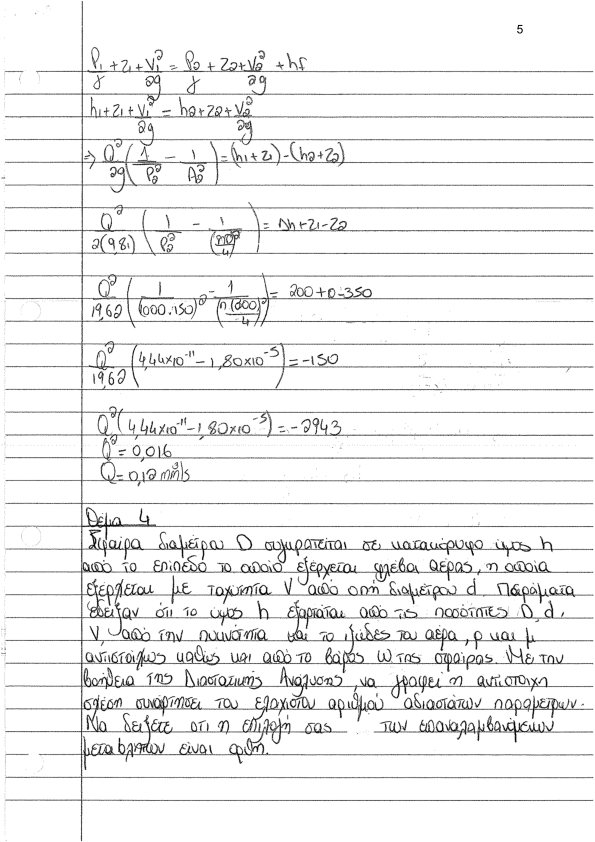 5
P₁/γ + z₁ + V₁²/2g = P₂/γ + z₂ + V₂²/2g + hf
h₁ + z₁ + V₁²/2g = h₂ + z₂ + V₂²/2g
⇒ Q²/2g (1/P₂² − 1/A₂²) = (h₁ + z₁) − (h₂ + z₂)
Q²/2(9,81) (1/P₂² − 1/(πD²/4)²) = Δh + z₁ − z₂
Q²/19,62 (1/(1000·150)² − 1/(π(200)²/4)) = 200 + 0 − 350
Q²/19,62 (4,44×10⁻¹¹ − 1,80×10⁻⁵) = −150
Q² (4,44×10⁻¹¹ − 1,80×10⁻⁵) = −2943
Q² = 0,016
Q = 0,12 mm³/s
Θέμα 4
Σφαίρα διαμέτρου D συγκρατείται σε κατακόρυφο ύψος h
από το επίπεδο το οποίο εξέρχεται φλέβα αέρας, η οποία
εξέρχεται με ταχύτητα V από οπή διαμέτρου d. Πειράματα
έδειξαν ότι το ύψος h εξαρτάται από τις ποσότητες D, d,
V, από την πυκνότητα και το ιξώδες του αέρα, ρ και μ
αντιστοίχως καθώς και από το βάρος W της σφαίρας. Με την
βοήθεια της Διαστατικής Ανάλυσης, να γραφεί η αντίστοιχη
σχέση συναρτήσει του ελαχίστου αριθμού αδιαστάτων παραμέτρων.
Να δείξετε οτι η επιλογή σας των επαναλαμβανόμενων
μεταβλητών είναι ορθή.